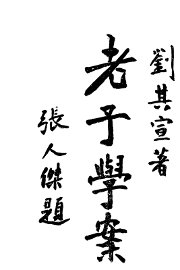 劉其宣著
老子學案
張人傑題